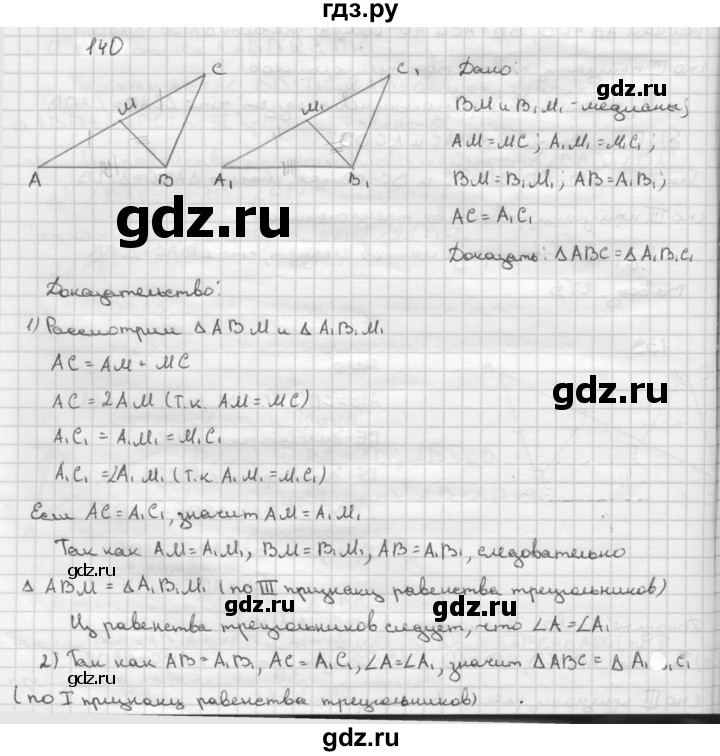 гдз.ру
140
C
C₁
Дано:
M
M₁
gdz.ru
BM и B₁M₁ - медианы;
AM = MC; A₁M₁ = M₁C₁;
A
B
A₁
B₁
BM = B₁M₁; AB = A₁B₁;
AC = A₁C₁
gdz.ru
Доказать: ΔABC = ΔA₁B₁C₁
Доказательство:
1) Рассмотрим ΔABM и ΔA₁B₁M₁
AC = AM + MC
AC = 2AM (т.к. AM = MC)
gdz.ru
A₁C₁ = A₁M₁ = M₁C₁
A₁C₁ = 2A₁M₁ (т.к A₁M₁ = M₁C₁)
Если AC = A₁C₁, значит AM = A₁M₁
gdz.ru
Так как AM = A₁M₁, BM = B₁M₁, AB = A₁B₁, следовательно
gdz.ru
ΔABM = ΔA₁B₁M₁ (по III признаку равенства треугольников)
gdz.ru
gdz.ru
Из равенства треугольников следует, что ∠A = ∠A₁
2) Так как AB = A₁B₁, AC = A₁C₁, ∠A = ∠A₁, значит ΔABC = ΔA₁ C₁
(по I признаку равенства треугольников)
gdz.ru
gdz.ru
gdz.ru